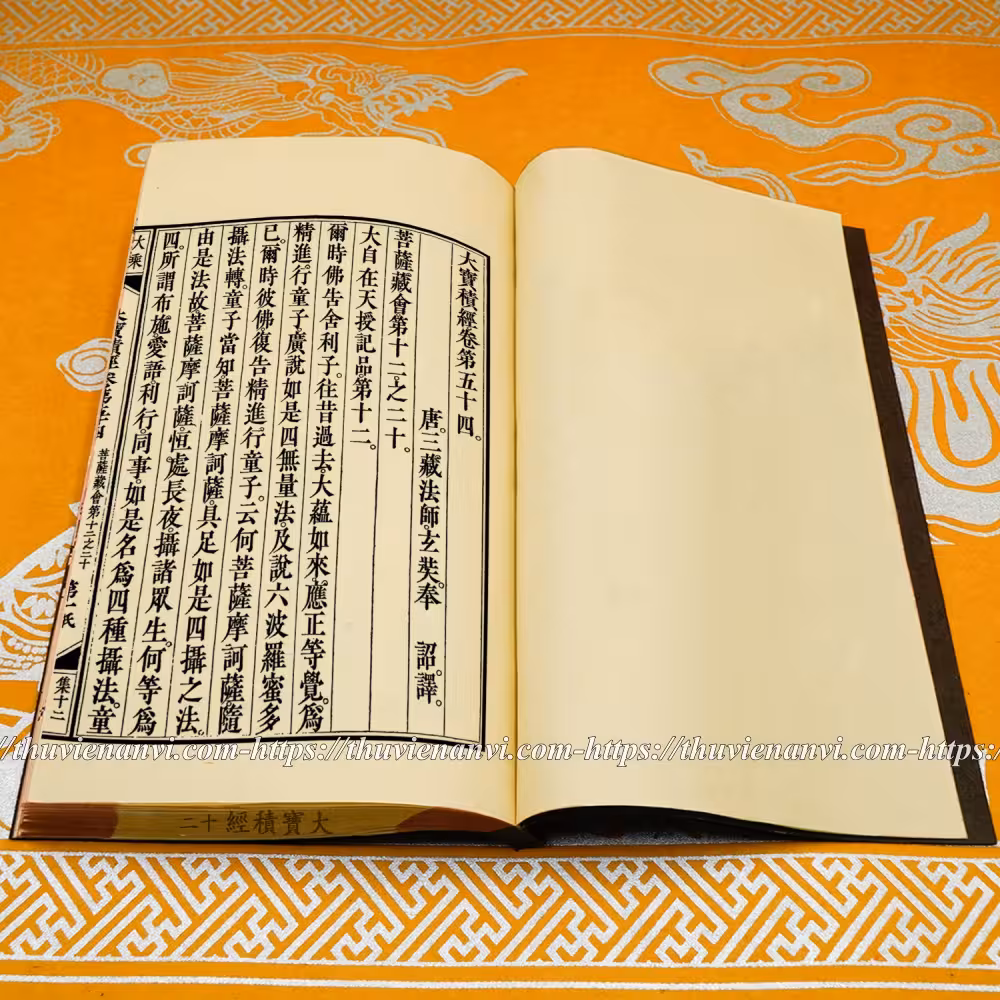 大寶積經卷第五十四。
唐。三藏法師。玄奘。奉　詔。譯。
菩薩藏會第十二之二十。
大自在天授記品。第十二。
爾時佛告舍利子。往昔過去。大蘊如來。應正等覺。爲
精進。行童子。廣說如是四無量法。及說六波羅蜜多
已。爾時彼佛。復告精進。行童子。云何菩薩摩訶薩隨
攝法轉。童子當知。菩薩摩訶薩。具足如是四攝之法。
由是法故。菩薩摩訶薩。恒處長夜。攝諸眾生。何等爲
四。所謂布施。愛語。利行。同事。如是名爲四種攝法。童
大乘
大寶積經卷第五十四　菩薩藏會第十二之二十
集十二
大寶積經 十二
//thuvienanvi.com-https://thuvienanvi.com-https://thuvienanvi.com-https:/